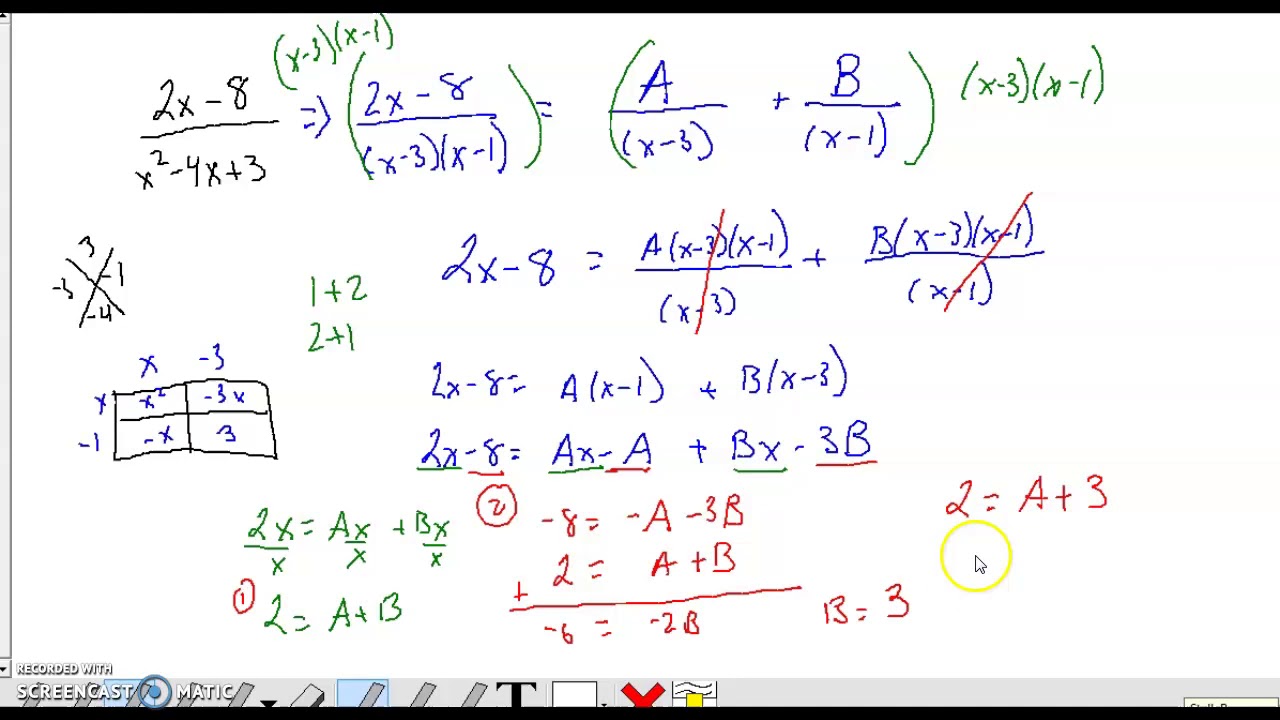 (x-3)(x-1)
2x-8 / x²-4x+3 => (2x-8 / (x-3)(x-1)) = (A / (x-3) + B / (x-1)) (x-3)(x-1)
2x-8 = A(x-3)(x-1) / (x-3) + B(x-3)(x-1) / (x-1)
3
-3 -1
-4
1+2
2+1
x -3
x x² -3x
-1 -x 3
2x-8 = A(x-1) + B(x-3)
2x-8 = Ax-A + Bx-3B
2x/x = Ax/x + Bx/x
① 2 = A+B
② -8 = -A-3B
+ 2 = A+B
-6 = -2B
B = 3
2 = A+3
RECORDED WITH
SCREENCAST MATIC
T